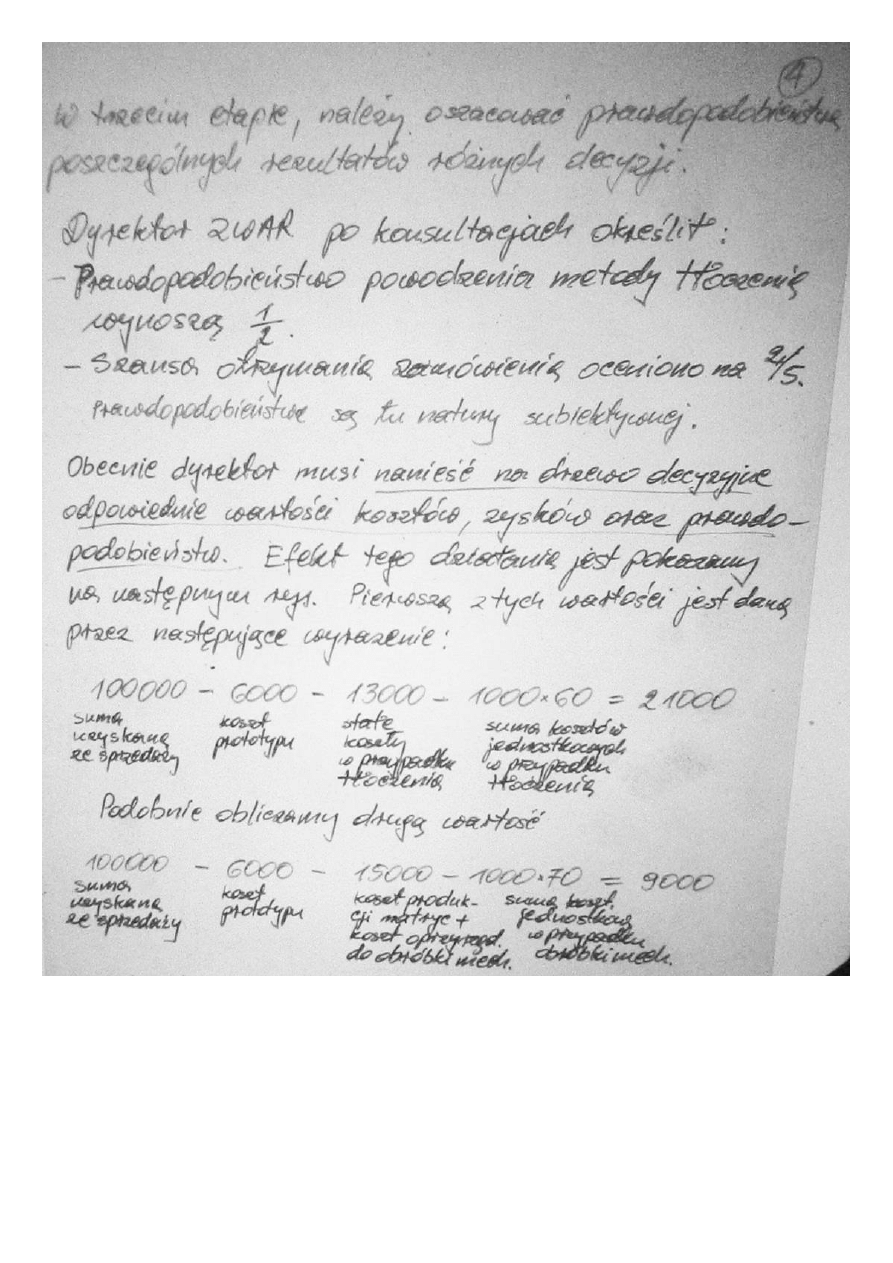 4
W trzecim etapie, należy oszacować prawdopodobieństwa
poszczególnych rezultatów różnych decyzji.
Dyrektor ZWAR po konsultacjach określił:
- Prawdopodobieństwo powodzenia metody tłoczenia
wynoszą 1/2.
- Szansa otrzymania zamówienia oceniono na 2/5.
Prawdopodobieństwa są tu natury subiektywnej.
Obecnie dyrektor musi nanieść na drzewo decyzyjne
odpowiednie wartości kosztów, zysków oraz prawdo-
podobieństw. Efekt tego działania jest pokazany
na następnym rys. Pierwsza z tych wartości jest dana
przez następujące wyrażenie:
100000 - 6000 - 13000 - 1000×60 = 21000
suma koszt stałe suma kosztów
uzyskana prototypu koszty jednostkowych
ze sprzedaży w przypadku w przypadku
tłoczenia tłoczenia
Podobnie obliczamy drugą wartość
100000 - 6000 - 15000 - 1000×70 = 9000
suma koszt koszt produk- suma koszt.
uzyskana prototypu cji matryc + jednostkową
ze sprzedaży koszt oprzyrząd. w przypadku
do obróbki mech. obróbki mech.